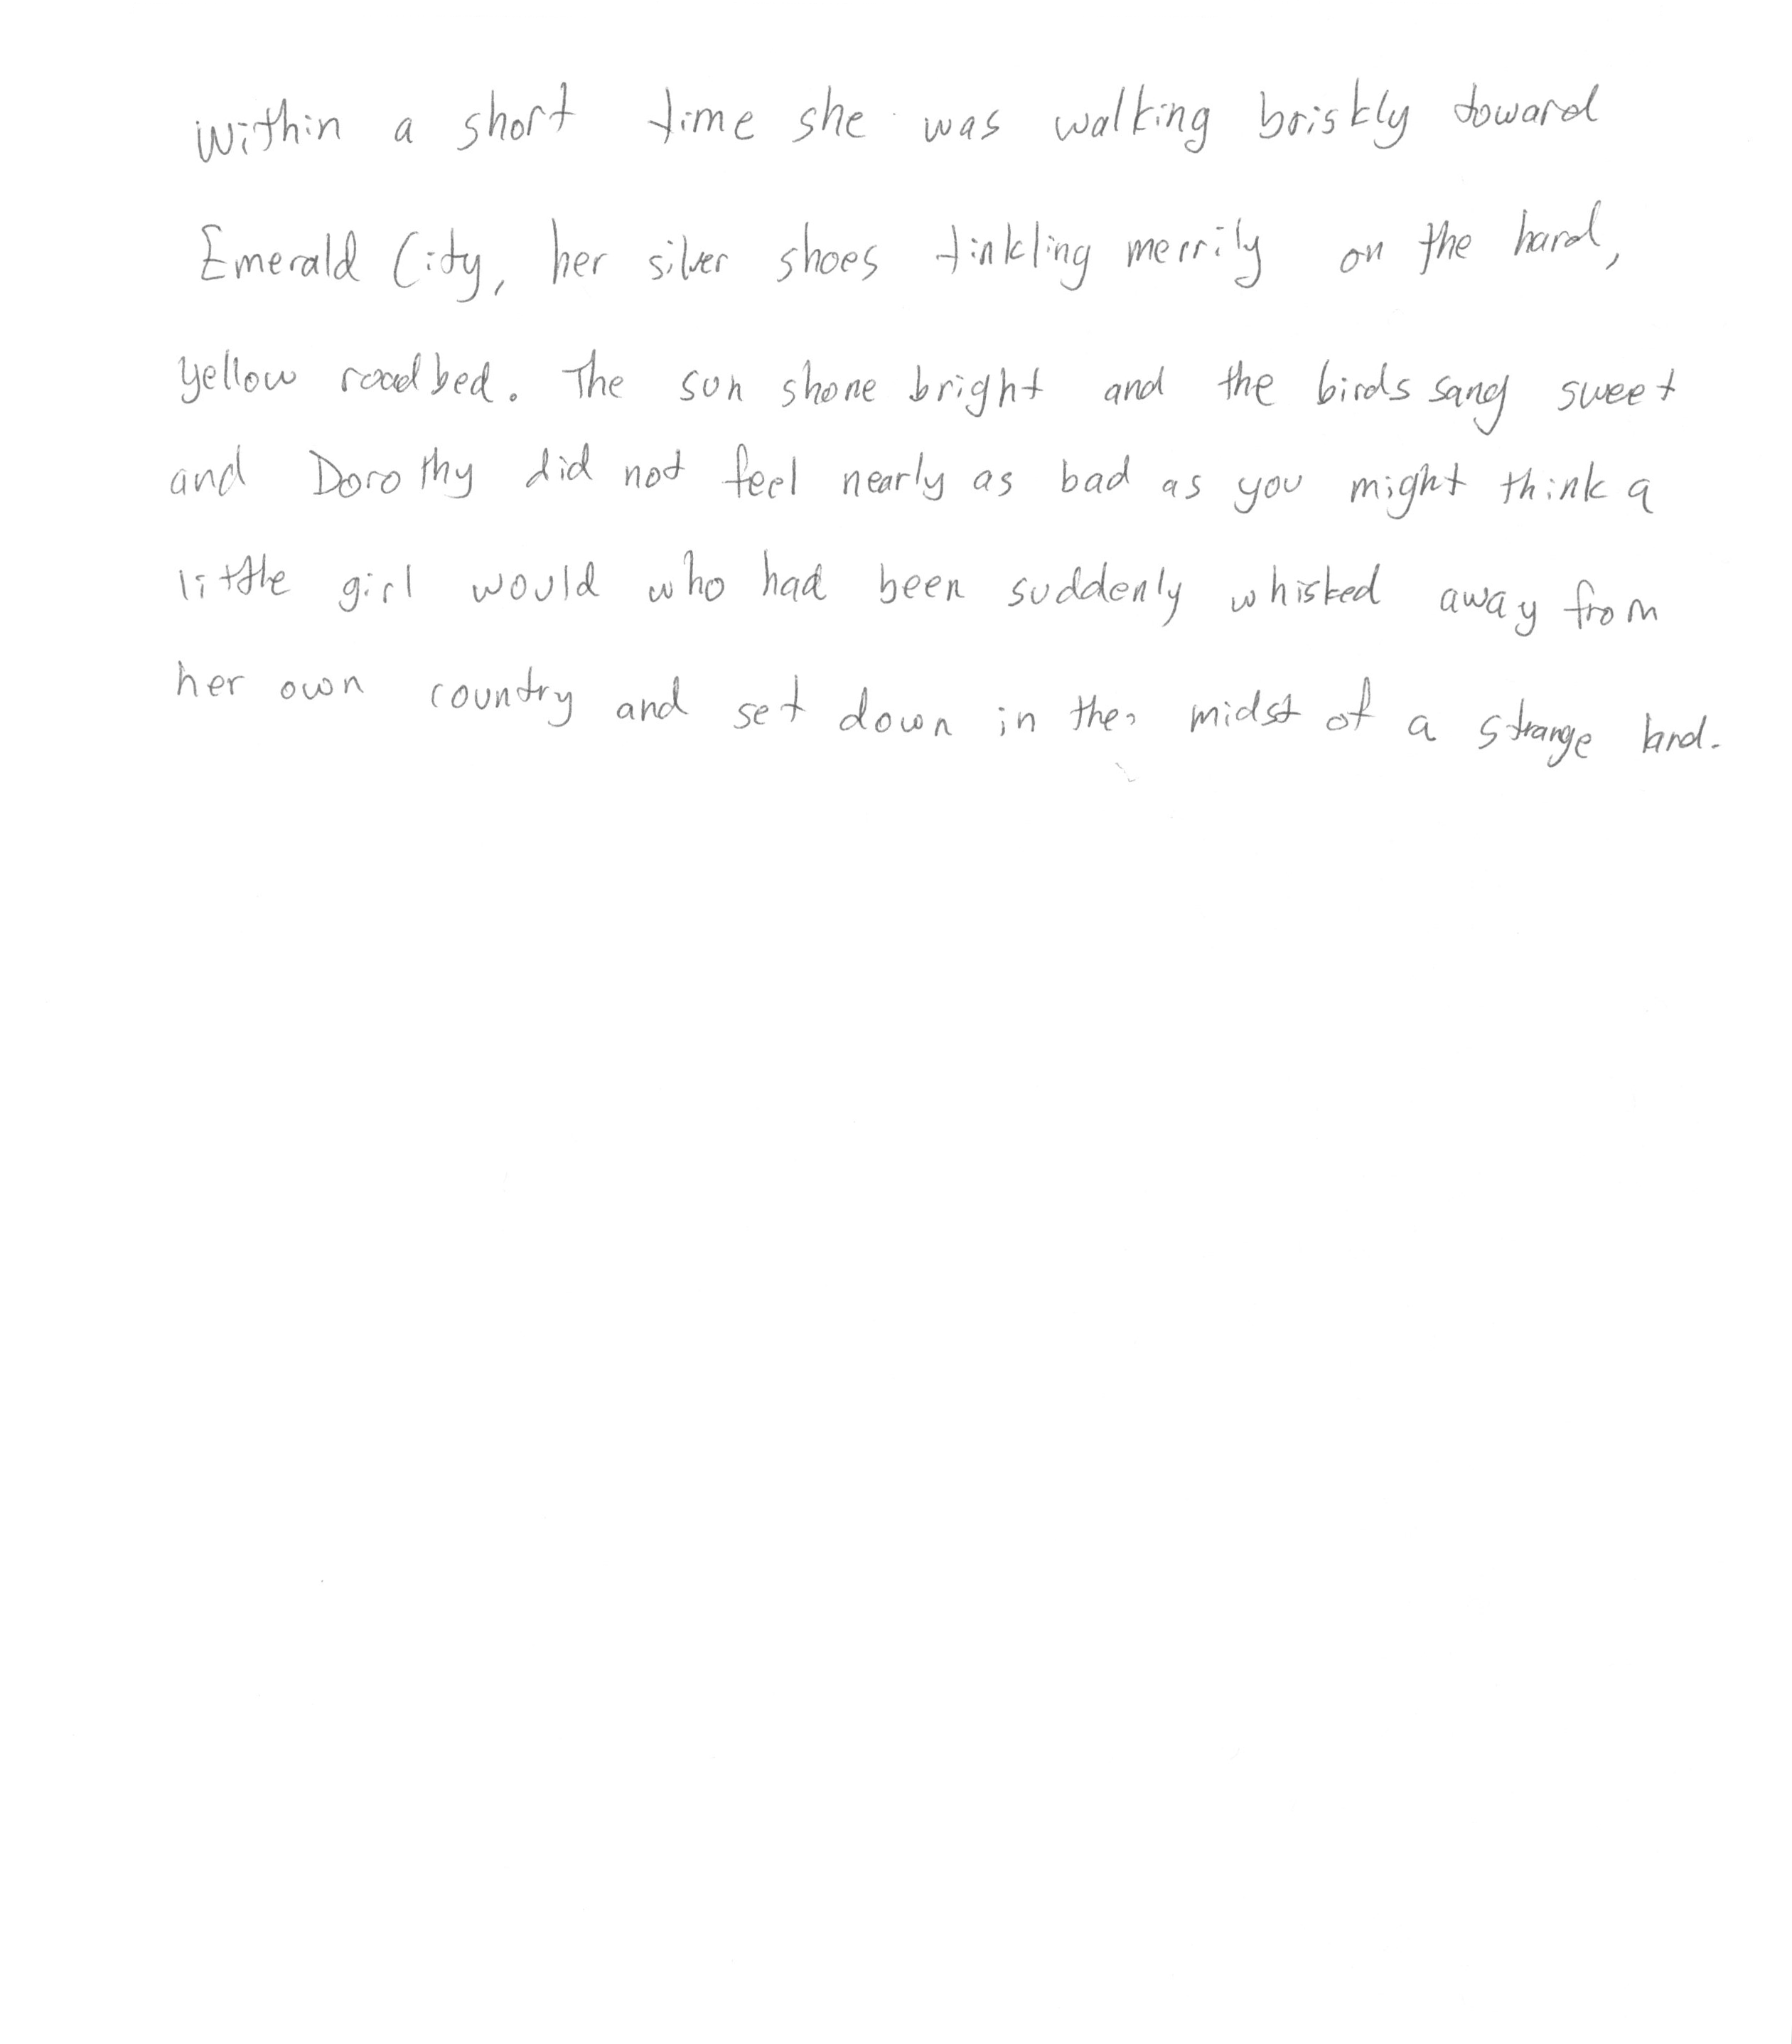 Within a short time she was walking briskly toward
Emerald City, her silver shoes tinkling merrily on the hard,
yellow roadbed. The sun shone bright and the birds sang sweet
and Dorothy did not feel nearly as bad as you might think a
little girl would who had been suddenly whisked away from
her own country and set down in the midst of a strange land.